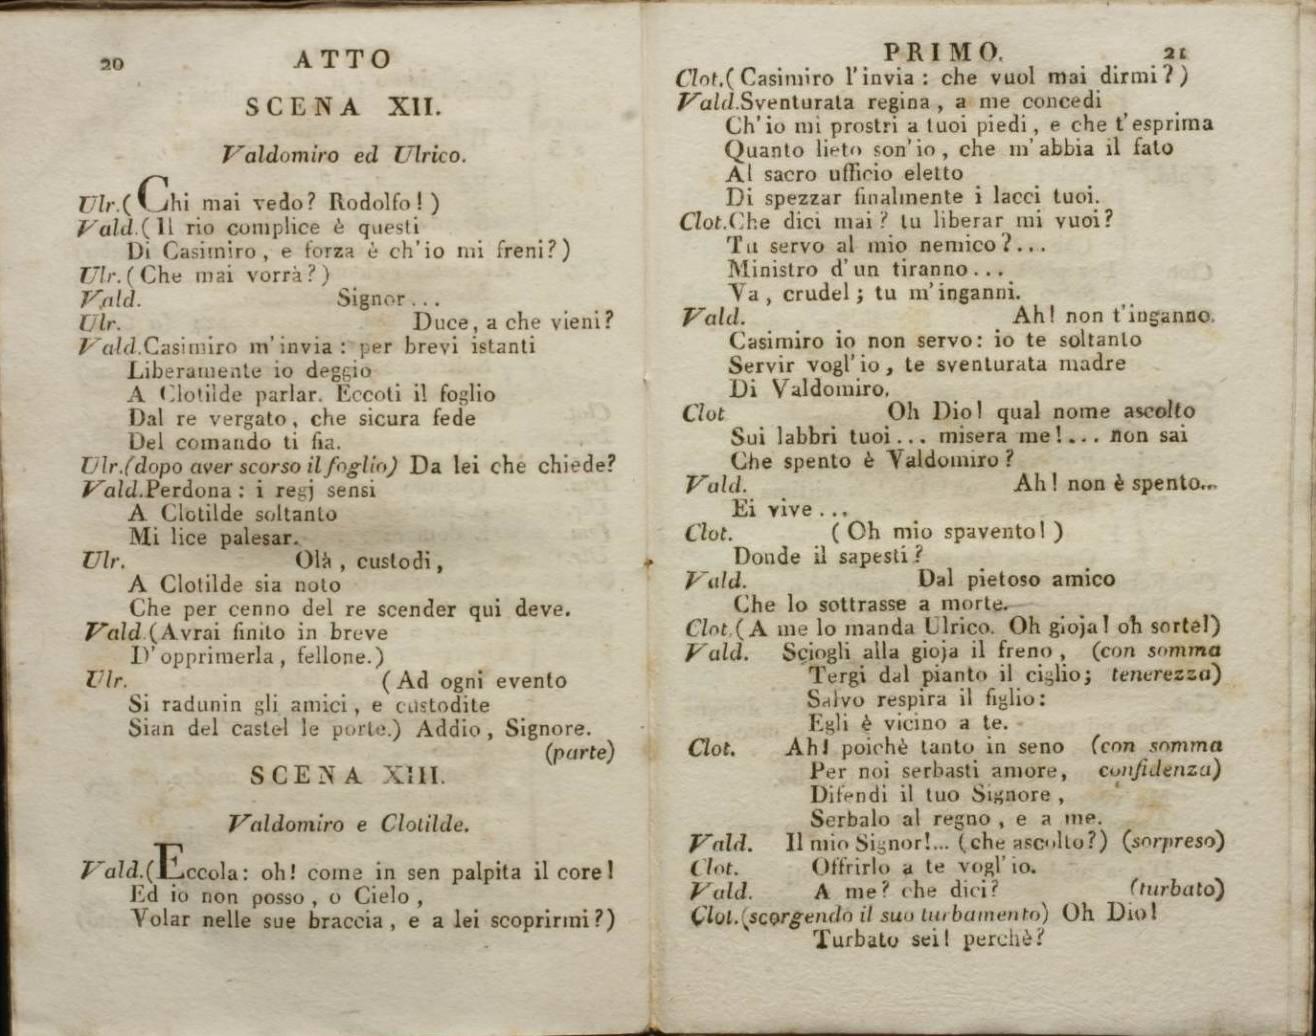 20 ATTO
SCENA XII.
Valdomiro ed Ulrico.
Ulr.( Chi mai vedo? Rodolfo! )
Vald.( Il rio complice è questi
Di Casimiro, e forza è ch'io mi freni?)
Ulr.(Che mai vorrà?)
Vald. Signor...
Ulr. Duce, a che vieni?
Vald.Casimiro m'invia: per brevi istanti
Liberamente io deggio
A Clotilde parlar. Eccoti il foglio
Dal re vergato, che sicura fede
Del comando ti fia.
Ulr.(dopo aver scorso il foglio) Da lei che chiede?
Vald.Perdona: i regj sensi
A Clotilde soltanto
Mi lice palesar.
Ulr. Olà, custodi,
A Clotilde sia noto
Che per cenno del re scender qui deve.
Vald.(Avrai finito in breve
D'opprimerla, fellone.)
Ulr. (Ad ogni evento
Si radunin gli amici, e custodite
Sian del castel le porte.) Addio, Signore.
(parte)
SCENA XIII.
Valdomiro e Clotilde.
Vald.(Eccola: oh! come in sen palpita il core!
Ed io non posso, o Cielo,
Volar nelle sue braccia, e a lei scoprirmi?)
PRIMO. 21
Clot.(Casimiro l'invia: che vuol mai dirmi?)
Vald.Sventurata regina, a me concedi
Ch'io mi prostri a tuoi piedi, e che t'esprima
Quanto lieto son'io, che m'abbia il fato
Al sacro ufficio eletto
Di spezzar finalmente i lacci tuoi.
Clot.Che dici mai? tu liberar mi vuoi?
Tu servo al mio nemico?...
Ministro d'un tiranno...
Va, crudel; tu m'inganni.
Vald. Ah! non t'inganno.
Casimiro io non servo: io te soltanto
Servir vogl'io, te sventurata madre
Di Valdomiro.
Clot Oh Dio! qual nome ascolto
Sui labbri tuoi... misera me!... non sai
Che spento è Valdomiro?
Vald. Ah! non è spento...
Ei vive...
Clot. (Oh mio spavento!)
Donde il sapesti?
Vald. Dal pietoso amico
Che lo sottrasse a morte.
Clot.(A me lo manda Ulrico. Oh gioja! oh sorte!)
Vald. Sciogli alla gioja il freno, (con somma
Tergi dal pianto il ciglio; tenerezza)
Salvo respira il figlio:
Egli è vicino a te.
Clot. Ah! poichè tanto in seno (con somma
Per noi serbasti amore, confidenza)
Difendi il tuo Signore,
Serbalo al regno, e a me.
Vald. Il mio Signor!... (che ascolto?) (sorpreso)
Clot. Offrirlo a te vogl'io.
Vald. A me? che dici? (turbato)
Clot.(scorgendo il suo turbamento) Oh Dio!
Turbato sei! perchè?